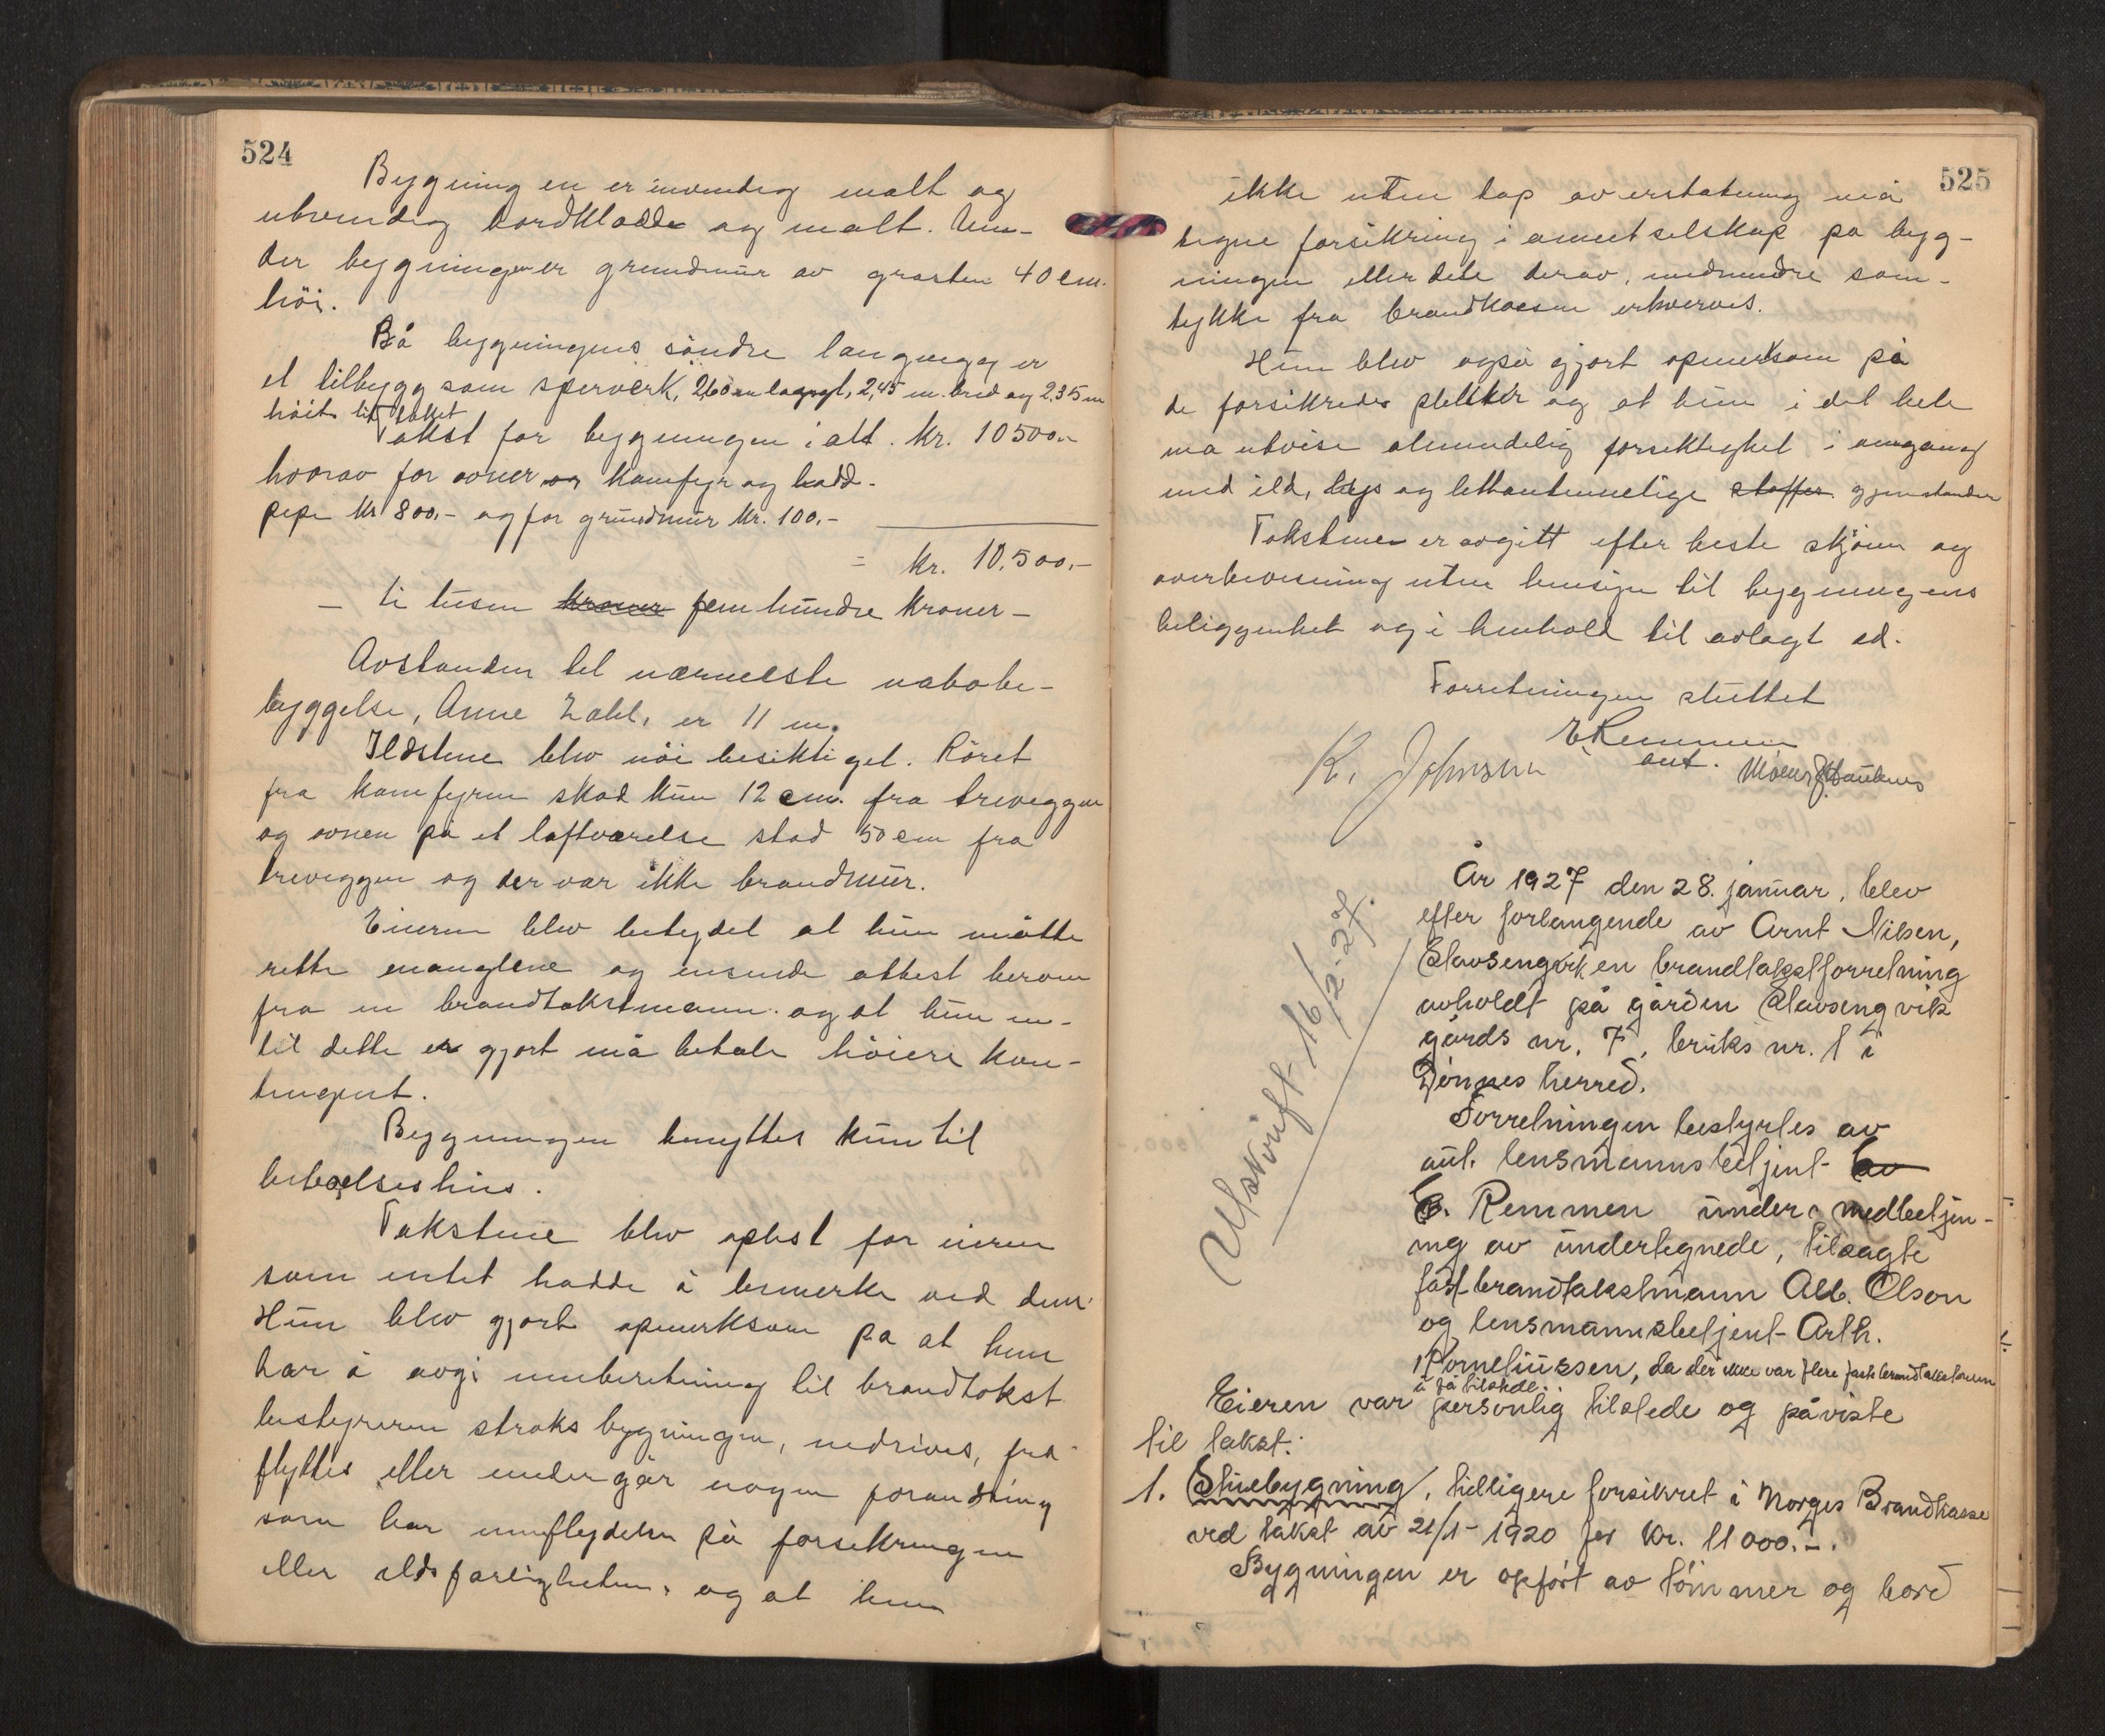 524
Bygningen er invendig malt og
utvendig bordklædde og malt. Un-
der bygningen er grundmur av graasten 40 cm.
höi.
På bygningens söndre langvegg er
et tilbygg som sperverk, 2,60 m langt, 2,45 m. bred og 2,35 m
höit til taket
Takst for bygningen i alt. kr. 10500.-
hvorav for ovner og kamfyr og hadd-
pipe kr 800.- og for grundmur kr. 100.-
= kr. 10,500.-
- ti tusen kroner fem hundre kroner -
Avstanden til nærmeste nabobe-
byggelse, Anne Zahl, er 11 m.
Ildstene blev nöi besiktiget. Röret
fra kamfyren stod kun 12 cm. fra treveggen
og ovnen på et loftværelse stod 50 cm fra
treveggen og der var ikke brandmur.
Eieren blev betydet at hun måtte
rette manglene og insende attest herom
fra en brandtakstmann. og at hun in-
til dette er gjort må betale höiere kon-
tingent.
Bygningen benyttes kun til
beboelseshus.
Takstene blev oplest for eieren
som intet hadde å bemerke ved dem.
Hun blev gjort opmerksom på at hun
har å avgi innberetning til brandtakst
bestyreren straks bygningen, nedrives, fra-
flyttes eller undergår nogen forandring
som har innflydelse på forsikringen
eller ildsfarligheten, og at hun
525
ikke uten tap av erstatning må
tegne forsikring i annet selskap på byg-
ningen eller dele derav, medmindre sam-
tykke fra brandkassen erhverves.
Hun blev også gjort opmerksom på
de forsikredes plikter og at hun i det hele
må utvise almindelig forsiktighet i omgang
med ild, lys og lettantennelige stoffer gjenstander
Takstene er avgitt efter beste skjönn og
overbevisning uten hensyn til bygningens
beliggenhet og i henhold til avlagt ed.
Forretningen sluttet
E. Remmen
aut.
K. Johnsen
Utskrift 16/2-27.
År 1927 den 28. januar, blev
efter forlangende av Arnt Nilsen,
Slavsengvik en brandtakstforretning
avholdt på gården Slavsengvik
gårds nr. 7, bruks nr. 1 i
Dönnes herred.
Forretningen bestyrtes av
aut. lensmannsbetjent av
E. Remmen under medbetjen-
ing av undertegnede, tilsagte
fast brandtakstmann Alb. Olson
og lensmannsbetjent Arth.
Korneliussen, da der ikke var flere faste brandtakstmenn
å få tilstede.
Eieren var personlig tilstede og påviste
til takst:
1. Stuebygning, tidligere forsikret i Norges Brandkasse
ved takst av 21/1-1920 for kr. 11000.-.
Bygningen er opfört av tömmer og bord